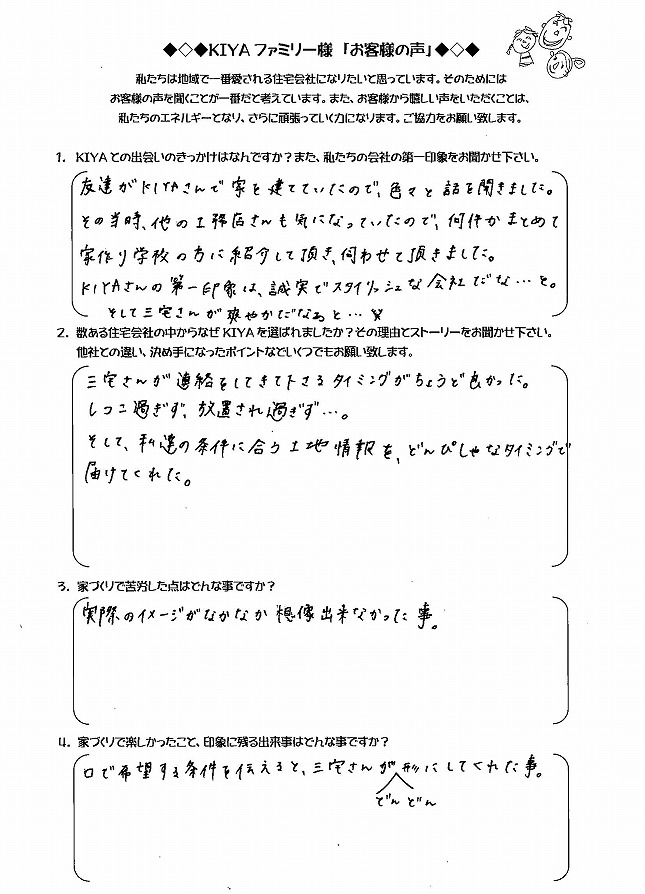 ◆◇◆KIYAファミリー様「お客様の声」◆◇◆
私たちは地域で一番愛される住宅会社になりたいと思っています。そのためには
お客様の声を聞くことが一番だと考えています。また、お客様から嬉しい声をいただくことは、
私たちのエネルギーとなり、さらに頑張っていく力になります。ご協力をお願い致します。
1. KIYAとの出会いのきっかけはなんですか？また、私たちの会社の第一印象をお聞かせ下さい。
友達がKIYAさんで家を建てていたので、色々と話を聞きました。
その当時、他の工務店さんも気になっていたので、何件かまとめて
家作り学校の方に紹介して頂き、伺わせて頂きました。
KIYAさんの第一印象は、誠実でスタイリッシュな会社だな…と。
そして三宅さんが爽やかだなぁと…笑
2. 数ある住宅会社の中からなぜKIYAを選ばれましたか？その理由とストーリーをお聞かせ下さい。
他社との違い、決め手になったポイントなどいくつでもお願い致します。
三宅さんが連絡をしてきて下さるタイミングがちょうど良かった。
しつこ過ぎず、放置され過ぎず…。
そして、私達の条件に合う土地情報を、どんぴしゃなタイミングで
届けてくれた。
3. 家づくりで苦労した点はどんな事ですか？
実際のイメージがなかなか想像出来なかった事。
4. 家づくりで楽しかったこと、印象に残る出来事はどんな事ですか？
口で希望する条件を伝えると、三宅さんが形にしてくれた事。
どんどん